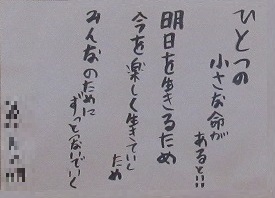 ひとつの
小さな命が
あると!!
明日を生きるため
今を楽しく生きていく
ため
みんなのために
ずっとつないでいく